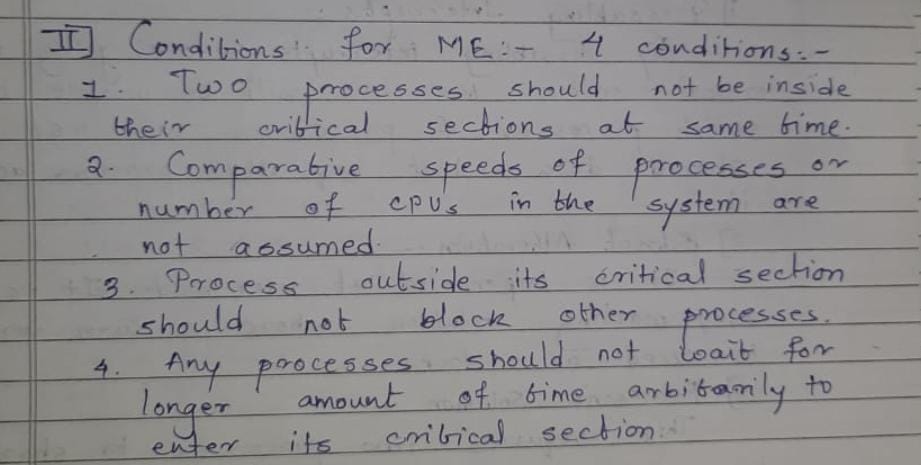 II] Conditions for ME:- 4 conditions:-
1. Two processes should not be inside
their critical sections at same time.
2. Comparative speeds of processes or
number of CPUs in the system are
not assumed.
3. Process outside its critical section
should not block other processes.
4. Any processes should not wait for
longer amount of time arbitarily to
enter its critical section.